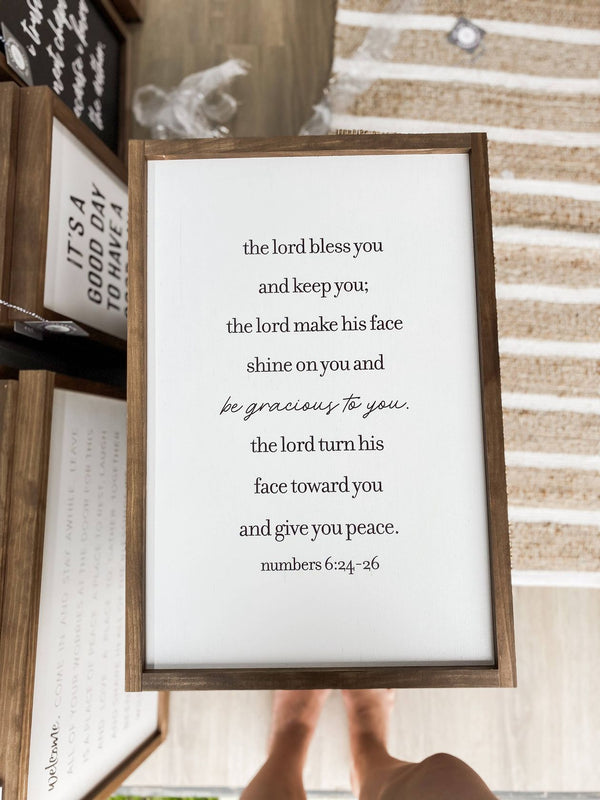 the lord bless you
and keep you;
the lord make his face
shine on you and
be gracious to you.
the lord turn his
face toward you
and give you peace.
numbers 6:24-26
IT'S A
GOOD DAY
TO HAVE A
welcome. COME IN AND STAY AWHILE. LEAVE
ALL OF YOUR WORRIES AT THE DOOR FOR THIS
IS A PLACE OF PEACE A PLACE TO REST, LAUGH
AND LOVE A PLACE TO GATHER TOGETHER